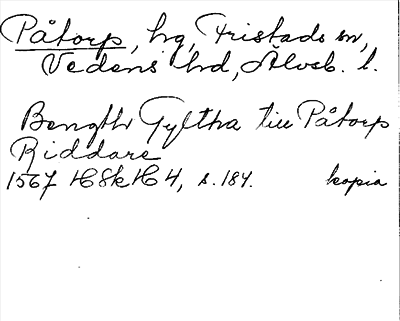 Påtorp, hg, Fristads sn,
Vedens hd, Älvsb. l.
Bengthr Gyltha till Påtorp
Riddare
1567 HSkH 4, s. 184. kopia